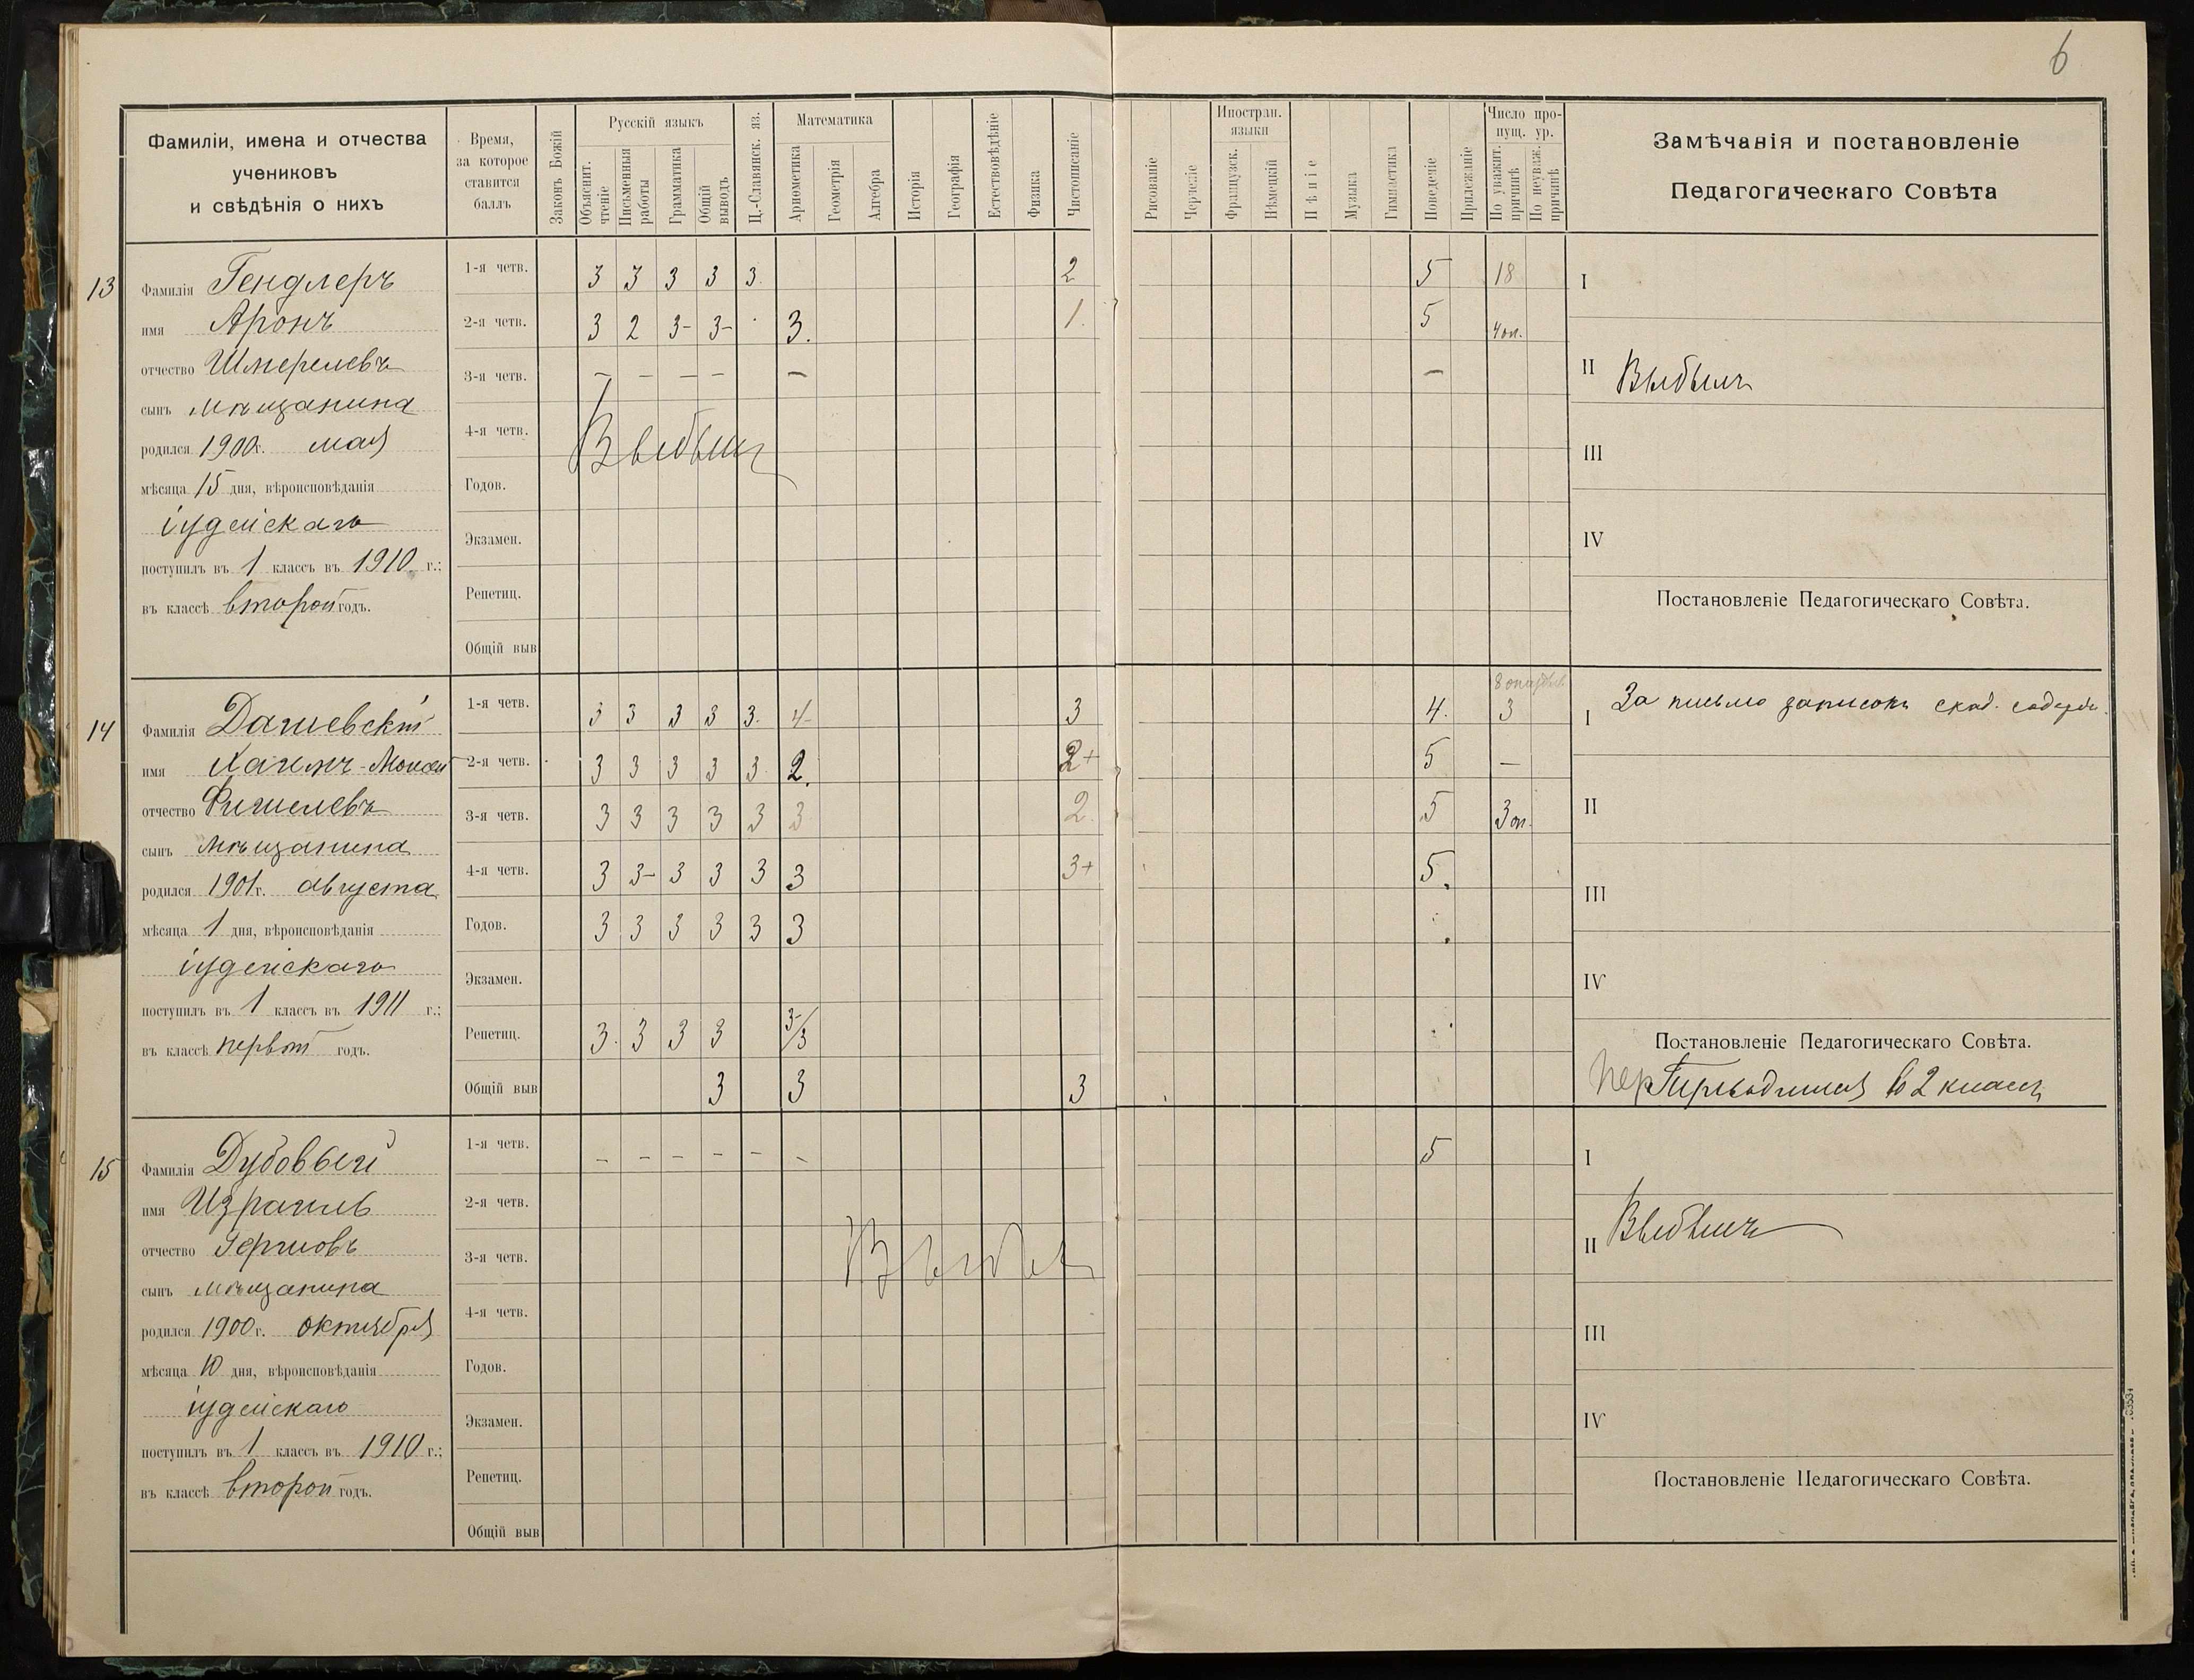 6
Фамиліи, имена и отчества
учениковъ
и свѣдѣнія о нихъ
Время,
за которое
ставится
баллъ
Законъ Божій
Русскій языкъ
Объяснит. чтеніе
Письменныя работы
Грамматика
Общій выводъ
Ц.-Славянск. яз.
Математика
Ариѳметика
Геометрія
Алгебра
Исторія
Географія
Естествовѣдѣніе
Физика
Чистописаніе
Рисованіе
Черченіе
Иностран. языки
Французск.
Нѣмецкій
Пѣніе
Музыка
Гимнастика
Поведеніе
Прилежаніе
Число пропущ. ур.
По уважит. причинѣ
По неуваж. причинѣ
Замѣчанія и постановленіе
Педагогическаго Совѣта
13
Фамилія Гендлеръ
имя Аронъ
отчество Шмерелевъ
сынъ мѣщанина
родился 1900 г. мая
мѣсяца 15 дня, вѣроисповѣданія
іудейскаго
поступилъ въ 1 классъ въ 1910 г.;
въ классѣ второй годъ.
1-я четв. 3 3 3 3 3. 2 5 18
2-я четв. 3 2 3- 3- 3. 1. 5 4 оп.
3-я четв. — — — — — —
4-я четв. Выбылъ
Годов.
Экзамен.
Репетиц.
Общій выв
I
II Выбылъ
III
IV
Постановленіе Педагогическаго Совѣта.
14
Фамилія Дашевскій
имя Хаимъ-Мойсей
отчество Фишелевъ
сынъ мѣщанина
родился 1901 г. августа
мѣсяца 1 дня, вѣроисповѣданія
іудейскаго
поступилъ въ 1 классъ въ 1911 г.;
въ классѣ первый годъ.
1-я четв. 3 3 3 3 3. 4- 3 4. 3
2-я четв. 3 3 3 3 3 2. 2+ 5 —
3-я четв. 3 3 3 3 3 3 2. 5 3 оп.
4-я четв. 3 3- 3 3 3 3 3+ 5.
Годов. 3 3 3 3 3 3
Экзамен.
Репетиц. 3. 3 3 3 3-/3
Общій выв 3 3 3
I За письмо записокъ
II
III
IV
Постановленіе Педагогическаго Совѣта.
Переводится во 2 классъ
15
Фамилія Дубовый
имя Израиль
отчество Гершовъ
сынъ мѣщанина
родился 1900 г. октября
мѣсяца 10 дня, вѣроисповѣданія
іудейскаго
поступилъ въ 1 классъ въ 1910 г.;
въ классѣ второй годъ.
1-я четв. – – – – – – 5
2-я четв.
3-я четв. Выбыл
4-я четв.
Годов.
Экзамен.
Репетиц.
Общій выв
I
II Выбылъ
III
IV
Постановленіе Педагогическаго Совѣта.